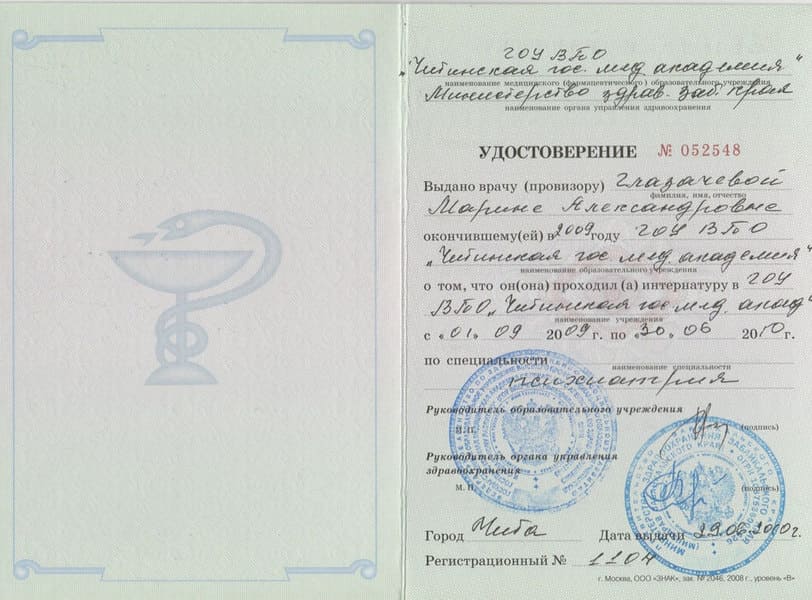 ГОУ ВПО
"Читинская гос. мед. академия"
наименование медицинского (фармацевтического) образовательного учреждения
Министерство здрав. Заб. края
наименование органа управления здравоохранения
УДОСТОВЕРЕНИЕ № 052548
Выдано врачу (провизору) Глазачевой
фамилия, имя, отчество
Марине Александровне
окончившему(ей) в 2009 году ГОУ ВПО
"Читинская гос мед. академия"
наименование образовательного учреждения
о том, что он(она) проходил (а) интернатуру в ГОУ
ВПО „Читинская гос мед. акад
наименование учреждения
с «01» 09 2009 г. по «30» 06 2010 г.
по специальности
наименование специальности
психиатрия
Руководитель образовательного учреждения
М.П. (подпись)
Руководитель органа управления
здравоохранения
М. П. (подпись)
Город Чита Дата выдачи 29.06.2010г.
Регистрационный № 1104
г. Москва, ООО «ЗНАК», зак. № 2046, 2008 г., уровень «В»